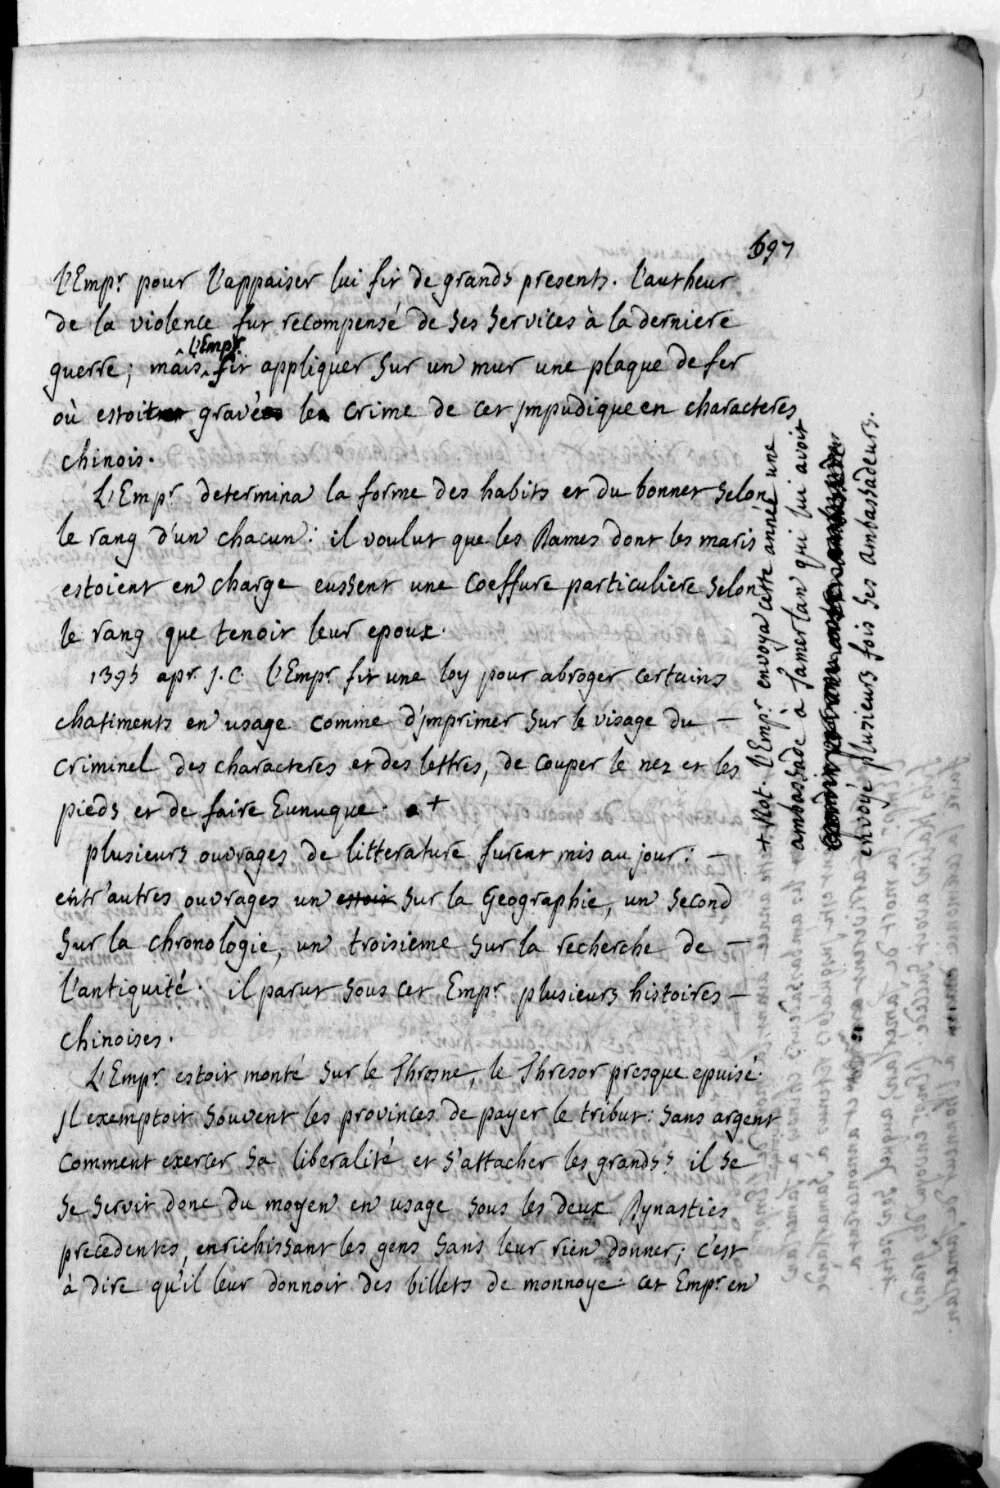 697
l'Empr pour l'appaiser lui fit de grands presents. l'autheur
de la violence fut recompensé de ses services à la derniere
guerre; mais l'Empr fit appliquer sur un mur une plaque de fer
où estoit gravé le crime de cet jmpudique en characteres
chinois.
L'Empr determina la forme des habits et du bonnet selon
le rang d'un chacun: il voulut que les Dames dont les maris
estoient en charge eussent une coeffure particuliere selon
le rang que tenoit leur epoux.
1395 apr. J.C. l'Empr fit une loy pour abroger certains
chatiments en usage comme d'jmprimer sur le visage du –
criminel des characteres et des lettres, de couper le nez et les
pieds et de faire Eunuque. +
plusieurs ouvrages de litterature furent mis au jour: –
entr'autres ouvrages un sur la Geographie, un second
sur la chronologie, un troisieme sur la recherche de –
l'antiquité. il parut sous cet Empr plusieurs histoires –
chinoises.
L'Empr estoit monté sur le Throsne, le Thresor presque epuisé.
Jl exemptoit souvent les provinces de payer le tribut: sans argent
comment exercer sa liberalité et s'attacher les grands? il se
se servit donc du moyen en usage sous les deux Dynasties
precedentes, enrichissant les gens sans leur rien donner; c'est
à dire qu'il leur donnoit des billets de monnoye. cet Empr en
+ Not. l'Empr envoya cette année une
ambassade à Tamerlan qui lui avoit
envoyé plusieurs fois ses ambassadeurs.